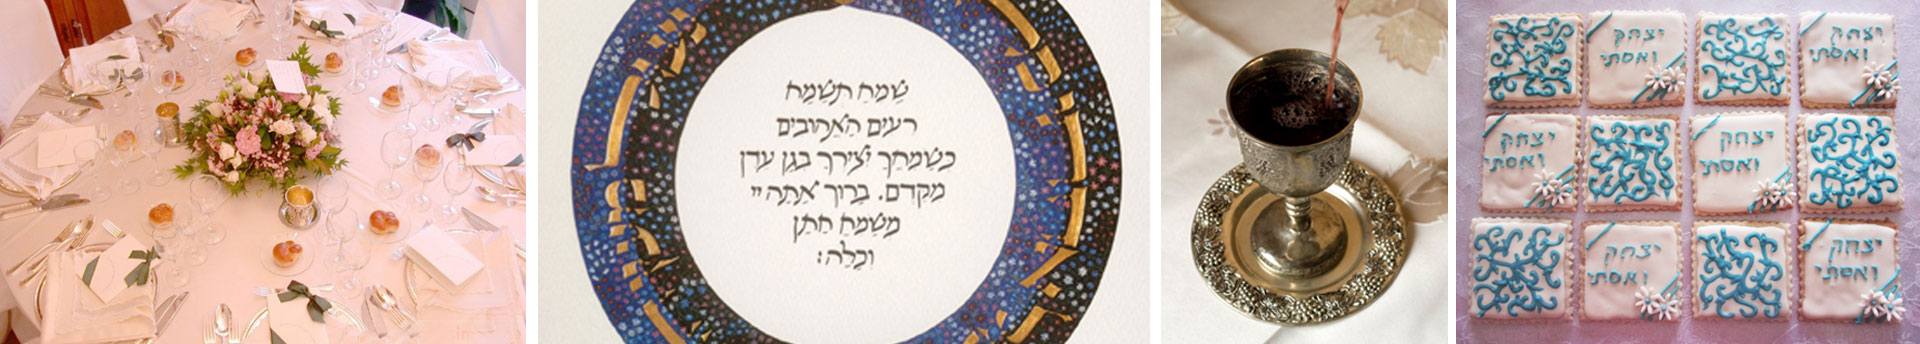 שַׂמֵּחַ תְּשַׂמַּח
רֵעִים הָאֲהוּבִים
כְּשַׂמֵּחֲךָ יְצִירְךָ בְּגַן עֵדֶן
מִקֶּדֶם. בָּרוּךְ אַתָּה יי
מְשַׂמֵּחַ חָתָן
וְכַלָּה:
יצחק
ואסתי
יצחק
ואסתי
יצחק
ואסתי
יצחק
ואסתי
יצחק
ואסתי
יצחק
ואסתי